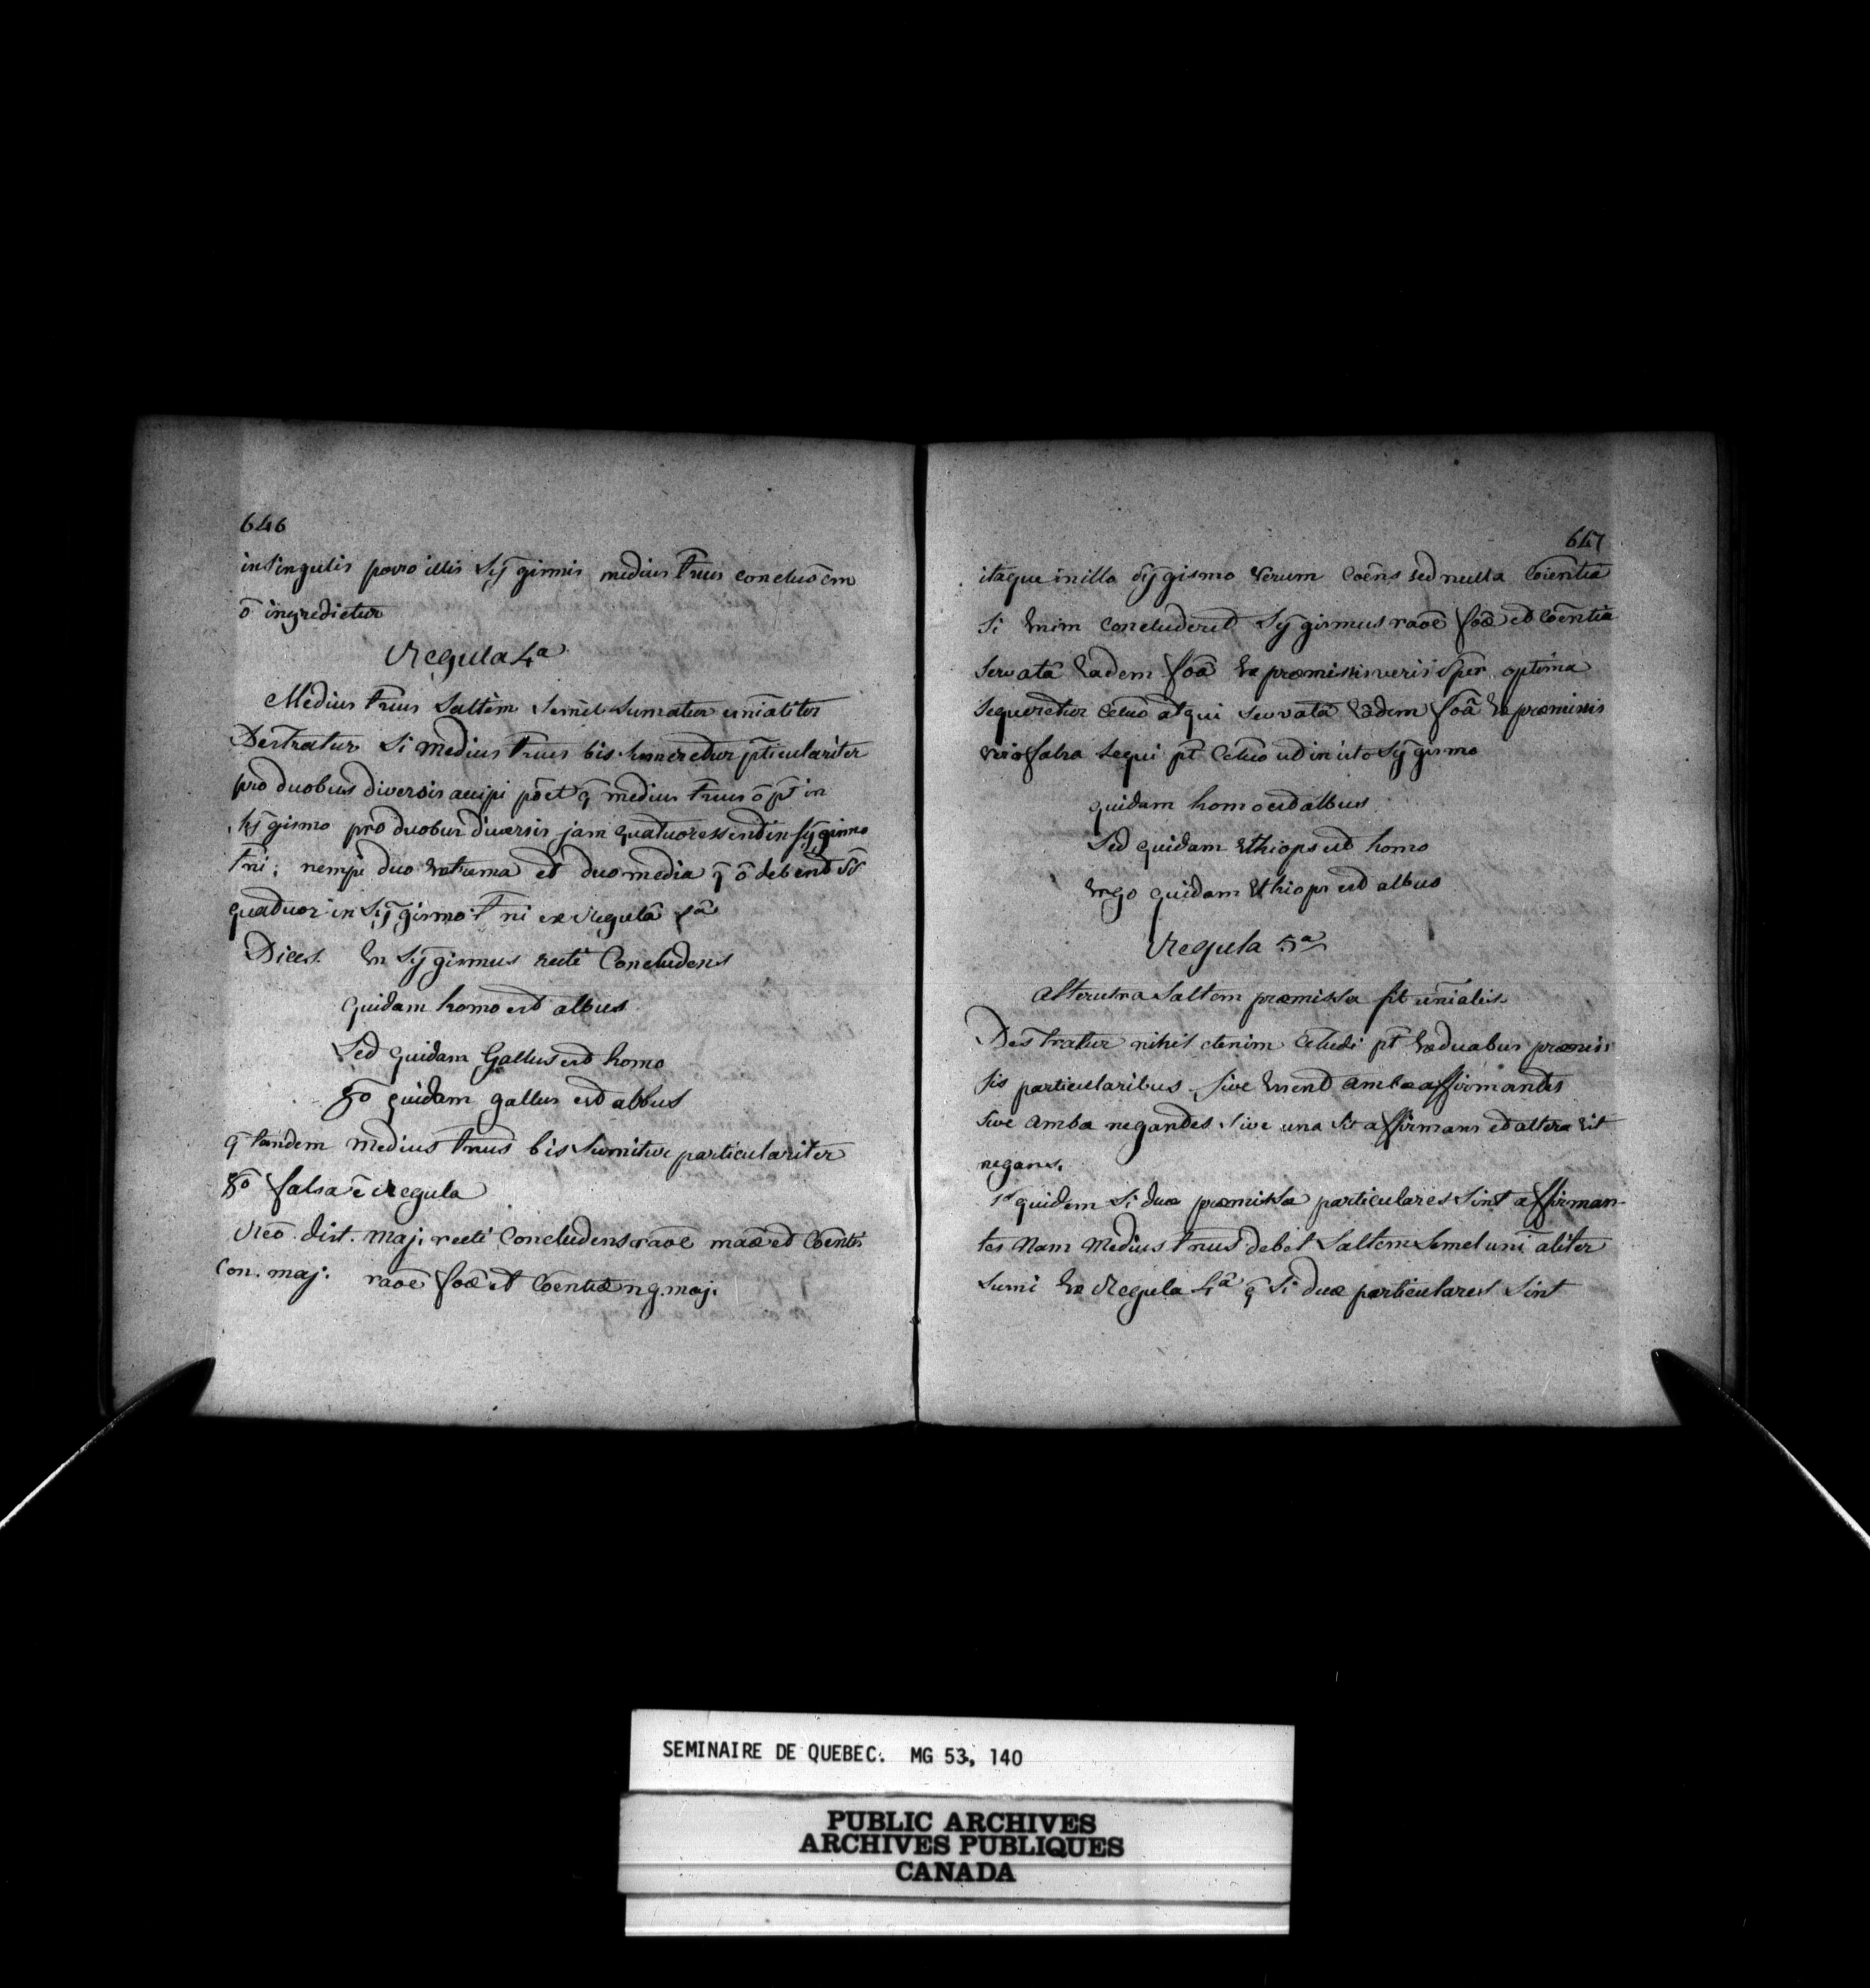 646
in singulis porro illis Syg̃ismis medius tr̃nus conclusõem
õ ingredietur
Regula 4ª
Medius tr̃nus Saltem Semel Sumatur unĩaliter
Des̃tratur Si medius tr̃nus bis Sumeretur pticulariter
pro duobus diversis accipi põet q̃ medius tr̃nus õ pt̃ in
Syg̃ismo pro duobus diversis jam quatuor essent in Syg̃ismo
tr̃ni; nempe duo extrema et duo media q̃ õ debent ẽe
quatuor in Syg̃ismo tr̃ni ex Regulâ 1ª
Dices. En Syg̃ismus recte Concludens
quidam homo est albus
Sed quidam Gallus est homo
gõ quidam gallus est albus
q̃ tandem medius tr̃nus bis Sumitur particulariter
gõ falsa ẽ Regula
Reõ. dist. maj. recte Concludens raõe maæ et Coẽntis
Con. maj. raõe foæ et Coẽntiæ ng. maj.
647
itaque in illo Syg̃ismo verum Coẽns sed nulla Coẽntia
Si Enim Concluderet Syg̃ismus raõe foæ et Coẽntiæ
Servatâ Eadem foâ Ex præmissis veris Sper optima
Sequeretur Cc̃luõ atqui Servatâ Eâdem foâ Ex præmissis
veris falsa Sequi pt̃ Cc̃luõ ut in isto Syg̃ismo
quidam homo est albus
Sed quidam Ethiops est homo
Ergo quidam Ethiops est albus
Regula 5ª
Alterutra Saltem præmissa sit unĩalis.
Des̃tratur nihil etenim Cc̃ludi pt̃ Ex duabus præmis
sis particularibus. Sive Essent Ambæ affirmantes
Sive Ambæ negantes. Sive una Sit affirmans et altera Sit
negans.
1º quidem Si duæ præmissæ particulares Sint affirman-
tes Nam Medius tr̃nus debet Saltem Semel unĩaliter
Sumi Ex Regula 4ª q̃ Si duæ particulares Sint
SEMINAIRE DE QUEBEC. MG 53, 140
PUBLIC ARCHIVES
ARCHIVES PUBLIQUES
CANADA